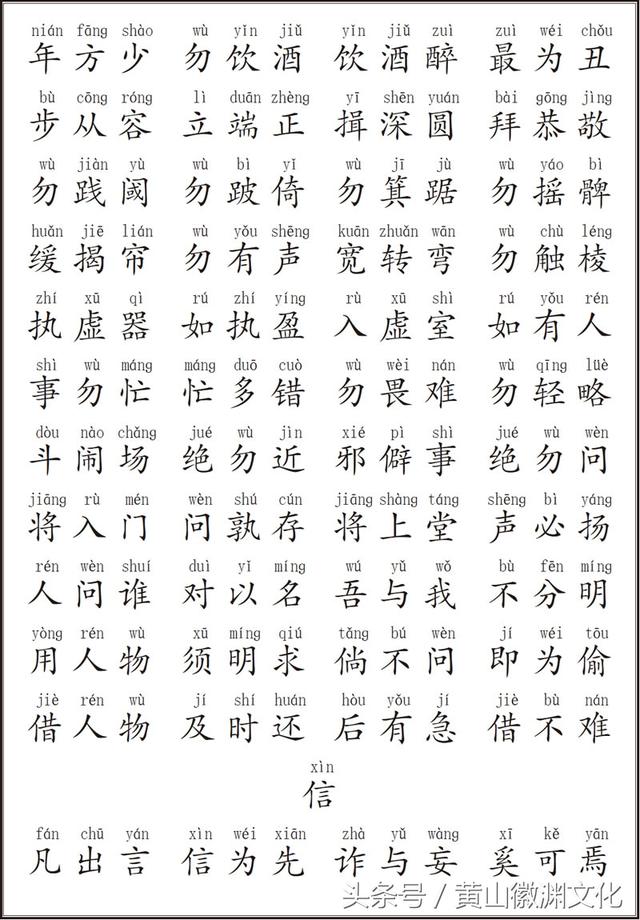 nián fāng shào wù yǐn jiǔ yǐn jiǔ zuì zuì wéi chǒu
年方少 勿饮酒 饮酒醉 最为丑
bù cōng róng lì duān zhèng yī shēn yuán bài gōng jìng
步从容 立端正 揖深圆 拜恭敬
wù jiàn yù wù bì yǐ wù jī jù wù yáo bì
勿践阈 勿跛倚 勿箕踞 勿摇髀
huǎn jiē lián wù yǒu shēng kuān zhuǎn wān wù chù léng
缓揭帘 勿有声 宽转弯 勿触棱
zhí xū qì rú zhí yíng rù xū shì rú yǒu rén
执虚器 如执盈 入虚室 如有人
shì wù máng máng duō cuò wù wèi nán wù qīng lüè
事勿忙 忙多错 勿畏难 勿轻略
dòu nào chǎng jué wù jìn xié pì shì jué wù wèn
斗闹场 绝勿近 邪僻事 绝勿问
jiāng rù mén wèn shú cún jiāng shàng táng shēng bì yáng
将入门 问孰存 将上堂 声必扬
rén wèn shuí duì yǐ míng wú yǔ wǒ bù fēn míng
人问谁 对以名 吾与我 不分明
yòng rén wù xū míng qiú tǎng bú wèn jí wéi tōu
用人物 须明求 倘不问 即为偷
jiè rén wù jí shí huán hòu yǒu jí jiè bù nán
借人物 及时还 后有急 借不难
xìn
信
fán chū yán xìn wéi xiān zhà yǔ wàng xī kě yān
凡出言 信为先 诈与妄 奚可焉
头条号 / 黄山徽渊文化